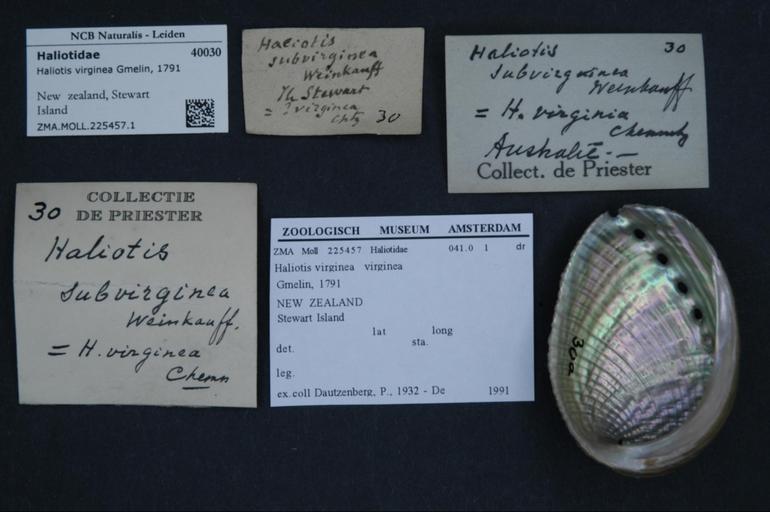 NCB Naturalis - Leiden
Haliotidae 40030
Haliotis virginea Gmelin, 1791
New zealand, Stewart
Island
ZMA.MOLL.225457.1
Haliotis
subvirginea
Weinkauff
Stewart
= ? virginea
Chtz 30
Haliotis 30
subvirginea
Weinkauff
= H. virginia
Chemnitz
Australië. —
Collect. de Priester
COLLECTIE
DE PRIESTER
30
Haliotis
subvirginea
Weinkauff.
= H. virginea
Chemn
ZOOLOGISCH MUSEUM AMSTERDAM
ZMA Moll 225457 Haliotidae 041.0 1 dr
Haliotis virginea virginea
Gmelin, 1791
NEW ZEALAND
Stewart Island
lat long
sta.
det.
leg.
ex.coll Dautzenberg, P., 1932 - De 1991
30a